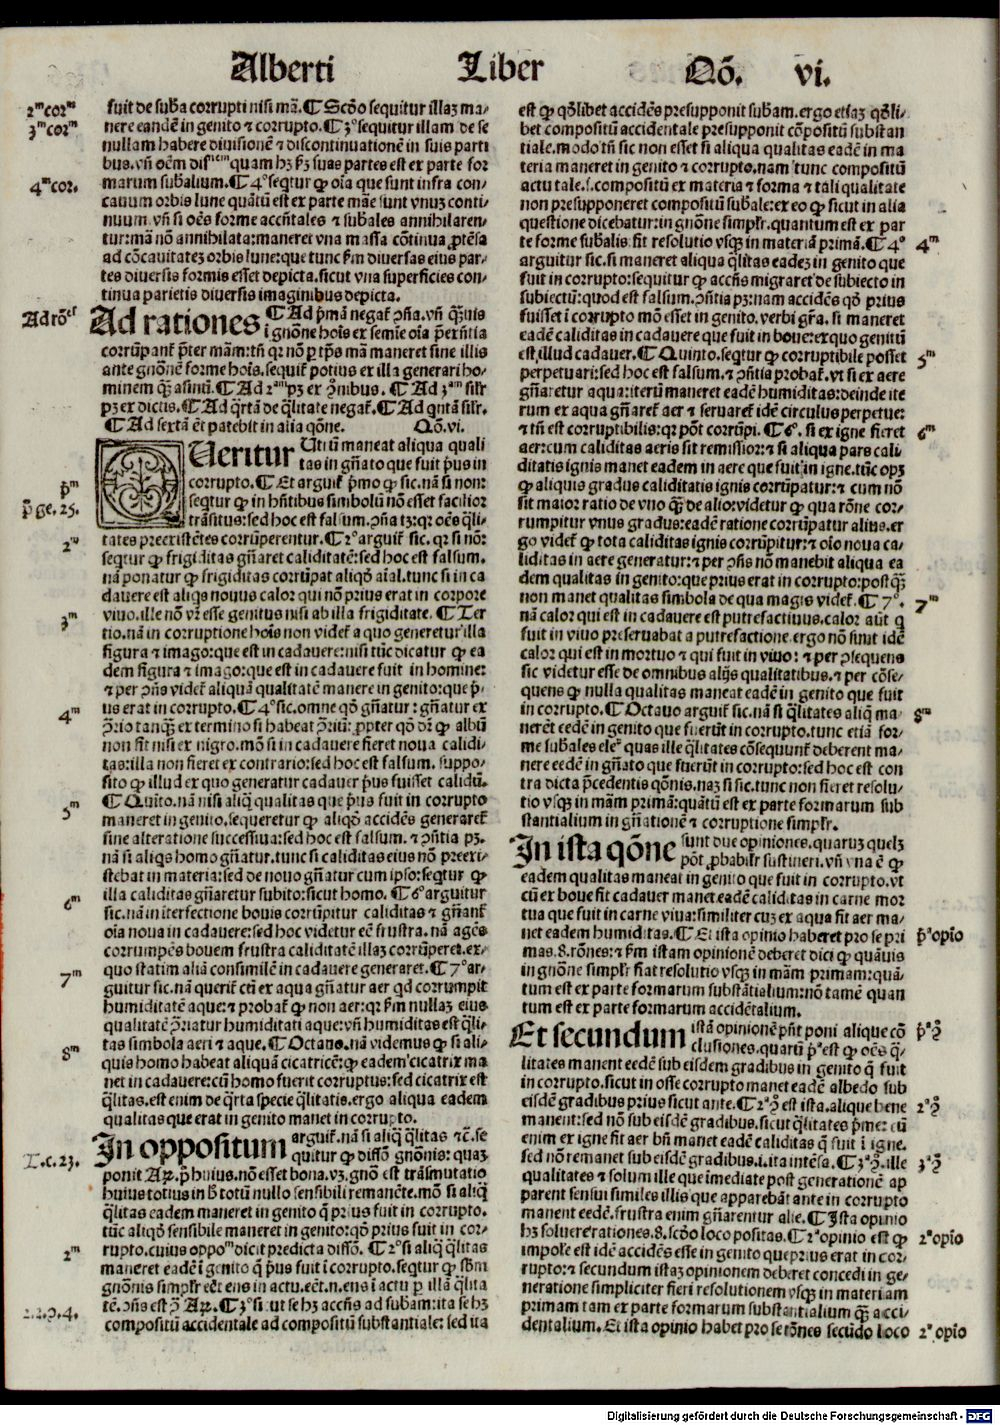 Alberti Liber Qõ. vi.
2ᵐ corᵐ
3ᵐ corᵐ
4ᵐ cor.
Ad rõᵉˢ
pᵐ
p̃ ge. 25.
2ᵐ
3ᵐ
4ᵐ
5ᵐ
6ᵐ
7ᵐ
8ᵐ
T. c. 23.
2ᵐ
fuit de suba corrupti nisi mã. ¶ Scõo sequitur illaz ma-
nere eandē in genito ⁊ corrupto. ¶ 3º sequitur illam de se
nullam habere diuisionē ⁊ discontinuationē in suis parti
marum subalium. ¶ 4º seqtur ꝙ oĩa que sunt infra con-
cauum orbis lune quãtũ est ex parte mãe sunt vnuz conti-
nuum. vñ si oẽs forme accñtales ⁊ subales annihilaren-
tur: mã nõ annihilata: maneret vna massa cõtinua ꝓtẽsa
ad cõcauitatez orbis lune: que tunc ẜm diuersas eius par-
tes diuersis formis esset depicta. sicut vna superficies con-
tinua parietis diuersis imaginibus depicta.
Ad rationes ¶ Ad p̃mã negat̃ ↄñã. vñ q̃uis
ĩ gnõne hoĩs ex semĩe oĩa p̃exñtia
corrũpant̃ p̃ter mãm: tñ qꝛ nõ ꝑ tp̃s mã maneret sine illis
ante gnõnē forme hoĩs. sequit̃ potius ex illa generari ho-
minem q̃ asinũ. ¶ Ad 2ᵃᵐ pꝫ ex ↄ̃nibus. ¶ Ad 3ᵃᵐ silr
pꝫ ex dictis. ¶ Ad q̃rtã de q̃litate negat̃. ¶ Ad qntã silr.
¶ Ad sextã ẽt patebit in alia qõne. Qõ. vi.
Queritur Utrũ maneat aliqua quali
tas in gñato que fuit p̃us in
corrupto. ¶ Et arguit̃ p̃mo ꝙ sic. nã si non:
seqtur ꝙ in hñtibus simbolũ nõ esset facilior
trãsitus: sed hoc est falsum. ↄñã tꝫ: qꝛ oẽs q̃li-
tates preexistẽtes corrũperentur. ¶ 2º arguit̃ sic. qꝛ si nõ:
seqtur ꝙ frigiditas gñaret caliditatē: sed hoc est falsum.
nã ponatur ꝙ frigiditas corrũpat aliqõ aĩal. tunc si in ca
dauere est aliqs nouus calor qui nõ prius erat in corpore
viuo. ille nõ vr̃ esse genitus nisi ab illa frigiditate. ¶ Ter
tio. nã in corruptione hoĩs non videt̃ a quo generetur illa
figura ⁊ imago: que est in cadauere: nisi tũc dicatur ꝙ ea
dem figura ⁊ imago: que est in cadauere fuit in homine:
⁊ per ↄñs videt̃ aliquã qualitatē manere in genito: que p̃-
us erat in corrupto. ¶ 4º sic. omne qõ gñatur: gñatur ex
ↄ̃rio tanq̃ ex termino si habeat ↄ̃riũ: ꝓpter qõ dr̃ ꝙ albũ
non fit nisi ex nigro. mõ si in cadauere fieret noua calidi-
tas: illa non fieret ex contrario: sed hoc est falsum. suppo-
sito ꝙ illud ex quo generatur cadauer p̃us fuisset calidũ.
¶ Quĩto. nã nisi aliq̃ qualitas que p̃us fuit in corrupto
maneret in genito. sequeretur ꝙ aliqõ accidēs generaret̃
sine alteratione successiua: sed hoc est falsum. ⁊ ↄñtia pꝫ.
nã si aliqs homo gñatur. tunc si caliditas eius nõ preexi-
stebat in materia: sed de nouo gñatur cum ipso: seqtur ꝙ
illa caliditas gñaretur subito: sicut homo. ¶ 6º arguitur
sic. nã in interfectione bouis corrũpitur caliditas ⁊ gñant̃
oĩa noua in cadauere: sed hoc videtur eē frustra. nã agẽs
corrumpẽs bouem frustra caliditatē illaz corrũperet. ex-
quo statim aliã consimilē in cadauere generaret. ¶ 7º ar-
guitur sic. nã querit̃ cũ ex aqua gñatur aer qd corrumpit
humiditatē aque: ⁊ probat̃ ꝙ non aer: qꝛ ẜm nullaz eius
qualitatē ↄ̃riatur humiditati aque: vñ humiditas est q̃li-
tas simbola aeri ⁊ aque. ¶ Octauo. nã videmus ꝙ si ali-
quis homo habeat aliquã cicatricē: ꝙ eadem cicatrix ma
net in cadauere: cũ homo fuerit corruptus: sed cicatrix est
q̃litas. est enim de q̃rta specie q̃litatis. ergo aliqua eadem
qualitas que erat in genito manet in corrupto.
In oppositum arguit̃. nã si aliq̃ q̃litas ⁊c̃. se
quitur ꝙ diffõ gnõnis: quaz
ponit Ar. p̃ huius. nõ esset bona. vꝫ. gnõ est trãsmutatio
huius totius in ħ totũ nullo sensibili remanẽte. mõ si aliq̃
q̃litas eadem maneret in genito q̃ prius fuit in corrupto.
tũc aliqõ sensibile maneret in genito: qõ prius fuit in cor-
rupto. cuius oppoᵐ dicit predicta diffõ. ¶ 2º si aliq̃ q̃litas
maneret eadē ĩ genito q̃ p̃us fuit ĩ corrupto. seqtur ꝙ ẜm
tē. ↄñs est ↄ̃ Ar. ¶ 3º si: ut se hꝫ accñs ad subam: ita se hꝫ
compositũ accidentale ad compositũ substantiale: sed ita
est ꝙ qõlibet accidēs presupponit subam. ergo etiaz qõli-
bet compositũ accidentale presupponit cõpositũ substan
tiale. modo tñ sic non esset si aliqua qualitas eadē in ma
teria maneret in genito ⁊ corrupto. nam tunc compositũ
actu tale. s. compositũ ex materia ⁊ forma ⁊ tali qualitate
non presupponeret compositũ subale: ex eo ꝙ sicut in alia
questione dicebatur: in gnõne simplr. quantum est ex par
te forme subalis. fit resolutio vsqꝫ in materiã primã. ¶ 4º
arguitur sic. si maneret aliqua q̃litas eadez in genito que
fuit in corrupto: sequitur ꝙ accñs migraret de subiecto in
subiectũ: quod est falsum. ↄñtia pꝫ: nam accidēs qõ prius
fuisset ĩ corrupto mõ esset in genito. verbi gr̃a. si maneret
eadē caliditas in cadauere que fuit in boue: ex quo genitũ
est illud cadauer. ¶ Quinto. seqtur ꝙ corruptibile posset
perpetuari: sed hoc est falsum. ⁊ ↄñtia probat̃. vt si ex aere
gñaretur aqua: iterũ maneret eadē humiditas: deinde ite
rum ex aqua gñaret̃ aer ⁊ seruaret̃ idē circulus perpetue:
⁊ tñ est corruptibilis: qꝛ põt corrũpi. ¶ 6º. si ex igne fieret
aer: cum caliditas aeris sit remissior: ⁊ si aliqua pars cali
ditatis ignis manet eadem in aere que fuit in igne. tũc opꝫ
ꝙ aliquis gradus caliditatis ignis corrũpatur: ⁊ cum nõ
sit maior ratio de vno q̃ de alio: videtur ꝙ qua rõne cor-
rumpitur vnus gradus: eadē ratione corrũpatur alius. er
go videt̃ ꝙ tota caliditas ignis corrũpitur: ⁊ oĩo noua ca-
liditas in aere generatur: ⁊ per ↄñs nõ manebit aliqua ea
dem qualitas in genito: que prius erat in corrupto: postq̃
non manet qualitas simbola de qua magis videt̃. ¶ 7º.
nã calor qui est in cadauere est putrefactiuus. calor aũt q
fuit in viuo preseruabat a putrefactione. ergo nõ sunt idē
calor qui est in mortuo ⁊ qui fuit in viuo: ⁊ per ↄsequens
sic videtur esse de omnibus alijs qualitatibus. ⁊ per cõse-
quens ꝙ nulla qualitas maneat eadē in genito que fuit
in corrupto. ¶ Octauo arguit̃ sic. nã si q̃litates aliq̃ ma-
nerẽt eedē in genito que fuerũt in corrupto. tunc etiã for-
me subales eleᵗ quas ille q̃litates cõsequunt̃ deberent ma-
nere eedē in gñato que fuerũt in corrupto: sed hoc est con
tra dicta p̃cedentis qõnis. naz si sic. tunc non fieret resolu-
tio vsqꝫ in mãm primã: quãtũ est ex parte formarum sub
stantialium in gñatione ⁊ corruptione simplr.
In ista qõne sunt due opiniones. quaruz quelꝫ
põt ꝓbabilr sustineri. vñ vna ē ꝙ
eadem qualitas maneat in genito que fuit in corrupto. vt
cũ ex boue fit cadauer manet eadē caliditas in carne mor
tua que fuit in carne viua: similiter cuz ex aqua fit aer ma-
net eadem humiditas. ¶ Et ista opinio haberet pro se pri
mas. 8. rõnes: ⁊ ẜm istam opinionē deberet dici ꝙ quãuis
in gnõne simplr fiat resolutio vsqꝫ in mãm primam: quã-
tum est ex parte formarum substãtialium: nõ tamē quan
tum est ex parte formarum accidẽtalium.
Et secundum istã opinionē pñt poni alique cõ
clusiones. quarũ p̃ᵃ est ꝙ oẽs q̃-
litates manent eedē sub eisdem gradibus in genito q̃ fuit
in corrupto. sicut in osse corrupto manet eadē albedo sub
eisdē gradibus prius sicut ante. ¶ 2ᵃ ↄ̃ est ista. alique bene
manent: sed nõ sub eisdē gradibus. sicut q̃litates p̃me: cũ
enim ex igne fit aer bñ manet eadē caliditas q̃ fuit ĩ igne.
sed nõ remanet sub eisdē gradibus. i. ita intẽsa. ¶ 3ᵃ ↄ̃. ille
qualitates ⁊ solum ille que imediate post generationē ap
parent sensui similes illis que apparebãt ante in corrupto
manent eedē. frustra enim gñarentur alie. ¶ Ista opinio
hꝫ soluere rationes. 8. scõo loco positas. ¶ 2ᵃ opinio est ꝙ
impole est idē accidēs esse in genito que prius erat in cor-
rupto: ⁊ secundum istaz opinionem deberet concedi in ge-
neratione simpliciter fieri resolutionem vsqꝫ in materiam
primam tam ex parte formarum substantialium q̃ acci-
dentalium. Et ista opinio habet pro se rõnes secũdo loco
4ᵐ
5ᵐ
6ᵐ
7ᵐ
8ᵐ
p̃ᵃ opĩo
p̃ᵃ ↄ̃
2ᵃ ↄ̃
3ᵃ ↄ̃
2ᵃ opĩo
2ᵃ opĩo
Digitalisierung gefördert durch die Deutsche Forschungsgemeinschaft - DFG